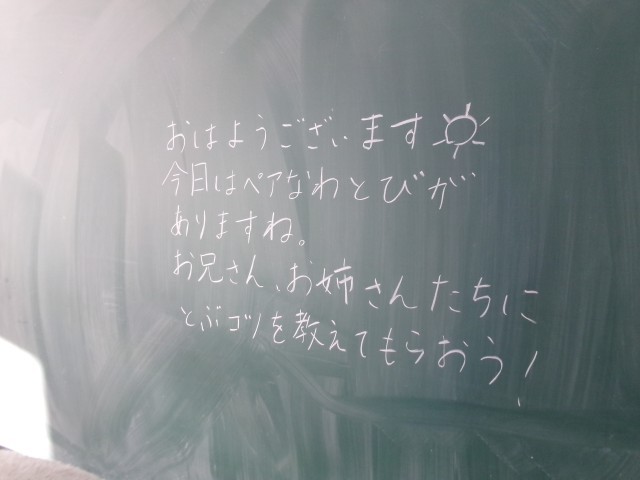 おはようございます
今日はペアなわとびが
ありますね。
お兄さん、お姉さんたちに
とぶコツを教えてもらおう!